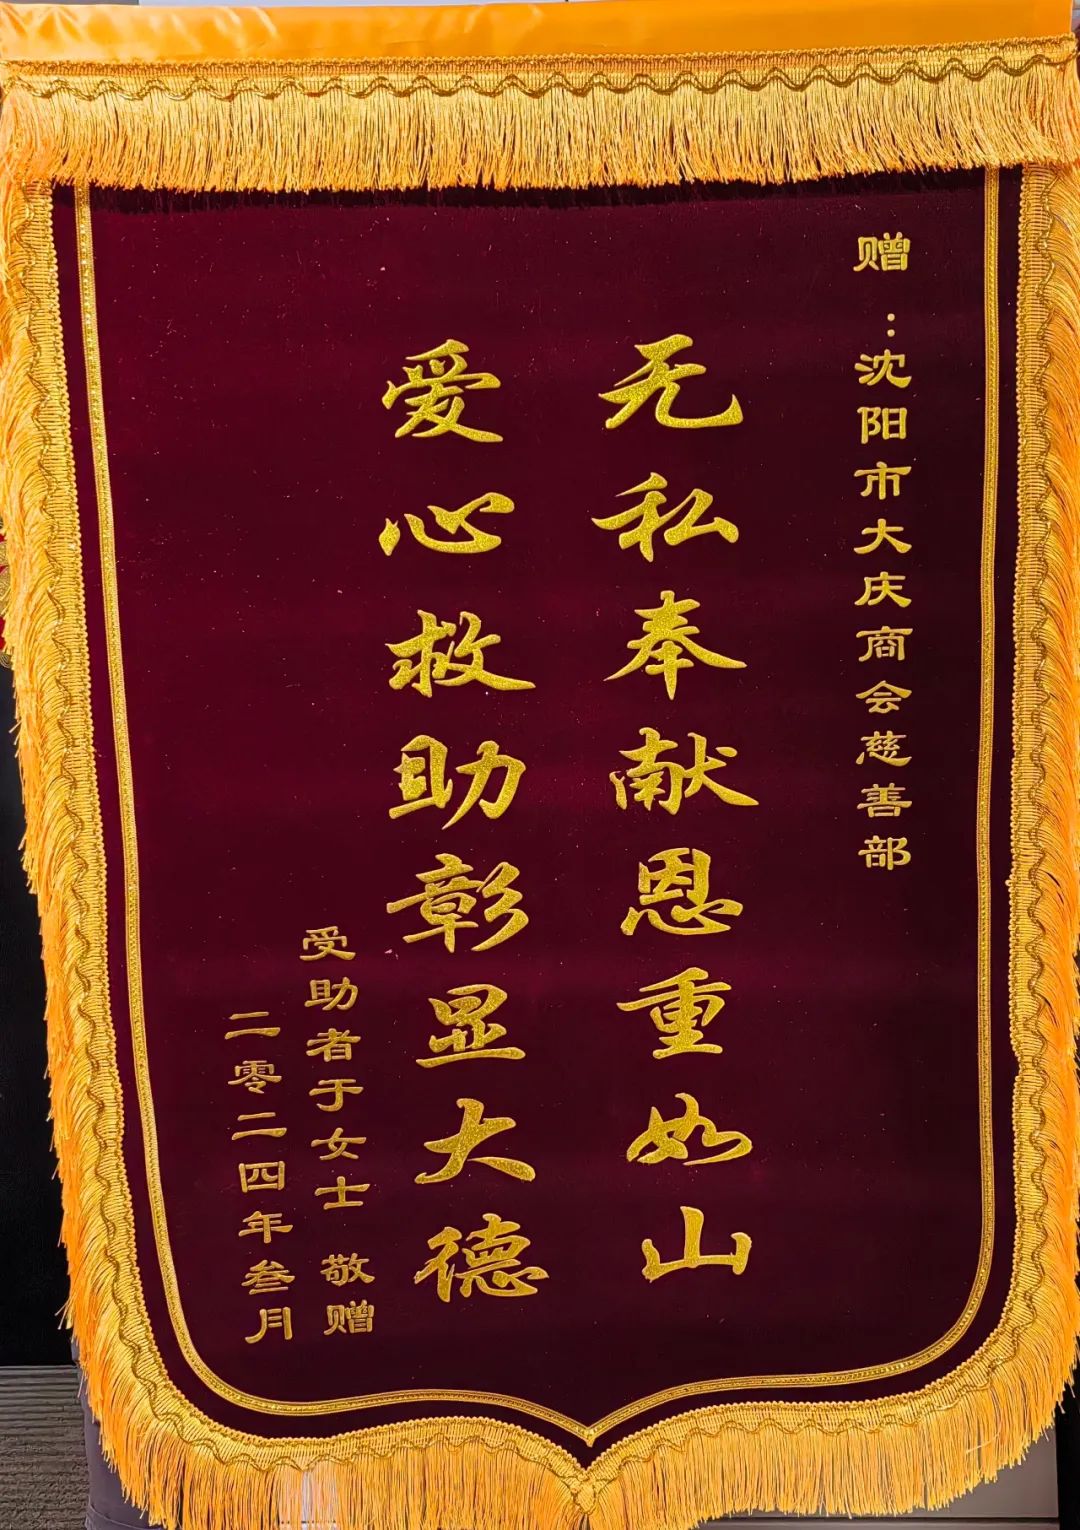 赠：沈阳市大庆商会慈善部
无私奉献恩重如山
爱心救助彰显大德
受助者于女士 敬赠
二零二四年叁月